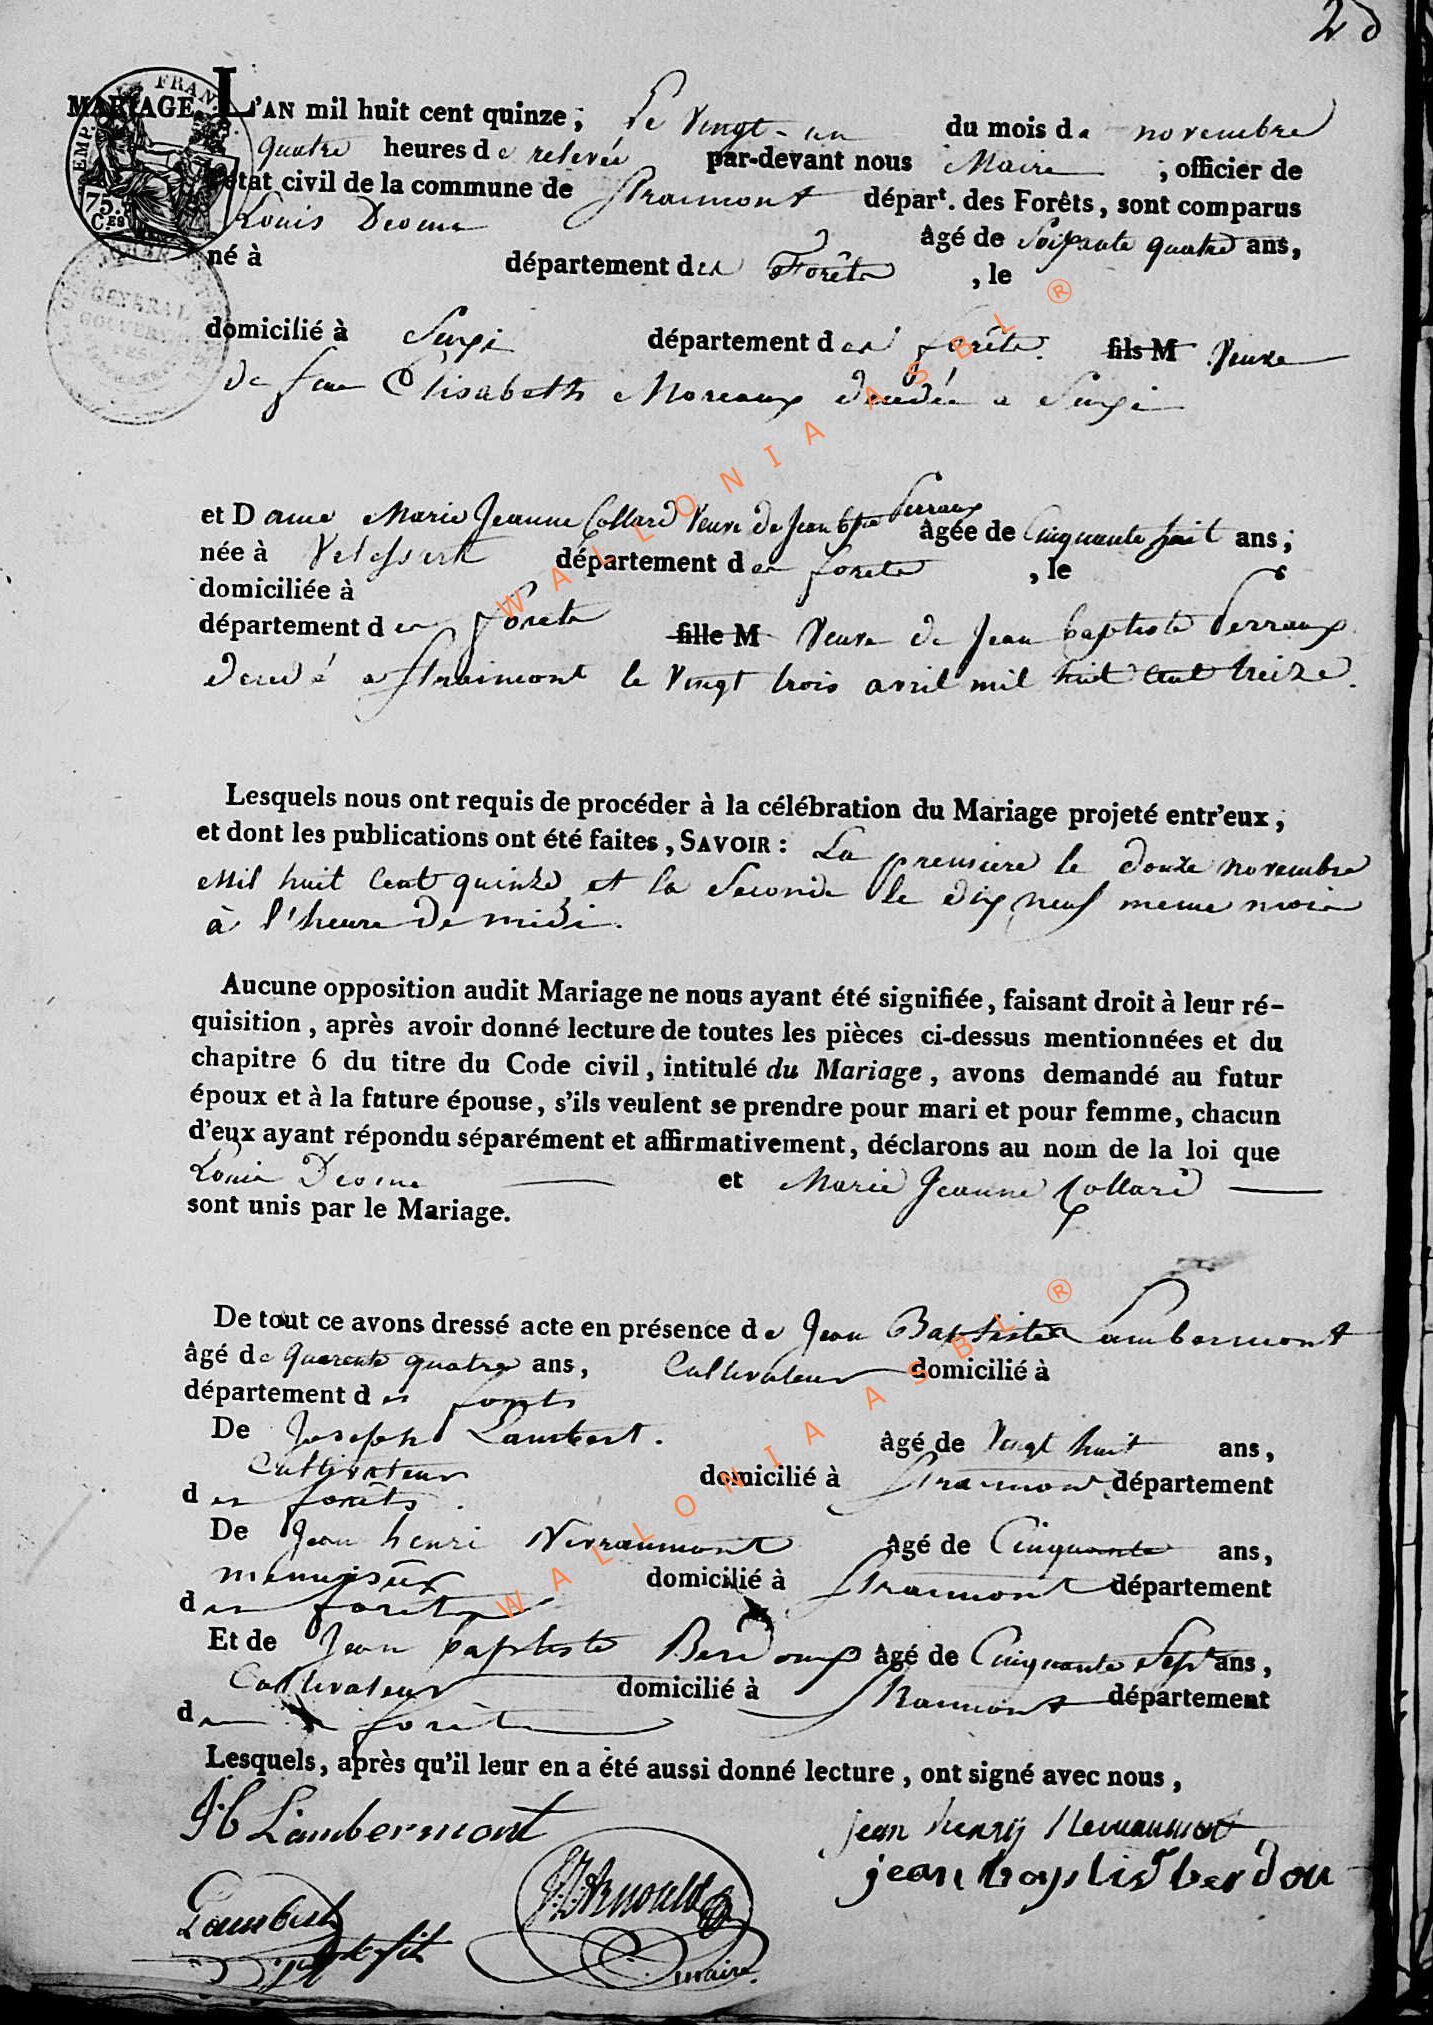 28
MARIAGE. L'AN mil huit cent quinze, le vingt-un du mois de novembre
quatre heures de relevée par-devant nous Maire, officier de
l'état civil de la commune de Straimont départ. des Forêts, sont comparus
Louis Deome âgé de soixante quatre ans,
né à département des Forêts, le
domicilié à Suxi département des forêts. fils M veuve
de feue Elisabeth Moreaux décédée a Suxi
et Dame Marie Jeanne Collard veuve de Jean bpte Perraux âgée de cinquante huit ans;
née à département des forets, le
domiciliée à
département des forets fille M veuve de Jean baptiste Perraux
décédé a Straimont le vingt trois avril mil huit cent treize.
Lesquels nous ont requis de procéder à la célébration du Mariage projeté entr'eux,
et dont les publications ont été faites, SAVOIR : La premiere le douze novembre
mil huit cent quinze et la seconde le dix neuf meme mois
à l'heure de midi.
Aucune opposition audit Mariage ne nous ayant été signifiée, faisant droit à leur ré-
quisition, après avoir donné lecture de toutes les pièces ci-dessus mentionnées et du
chapitre 6 du titre du Code civil, intitulé du Mariage, avons demandé au futur
époux et à la future épouse, s'ils veulent se prendre pour mari et pour femme, chacun
d'eux ayant répondu séparément et affirmativement, déclarons au nom de la loi que
Louis Deome et Marie Jeanne Collard
sont unis par le Mariage.
De tout ce avons dressé acte en présence de Jean Baptiste Lambermont
âgé de quarente quatre ans, cultivateur domicilié à
département des forets
De Joseph Lambert. âgé de vingt huit ans,
cultivateur domicilié à Straimont département
des forêts.
De Jean henri Nevraumont âgé de cinquante ans,
menuisier domicilié à Straimont département
des forêts
Et de Jean baptiste Berdoux âgé de cinquante sept ans,
cultivateur domicilié à Straimont département
des forêts
Lesquels, après qu'il leur en a été aussi donné lecture, ont signé avec nous,
JB Lambermont jean henry Nevraumont
jean baptist berdou
Lambert J.J. Arnould
maire.
FRAN
EMP
75.
Ces
GENERAL
GOUVERN
WALLONIA ASBL ®
WALLONIA ASBL ®